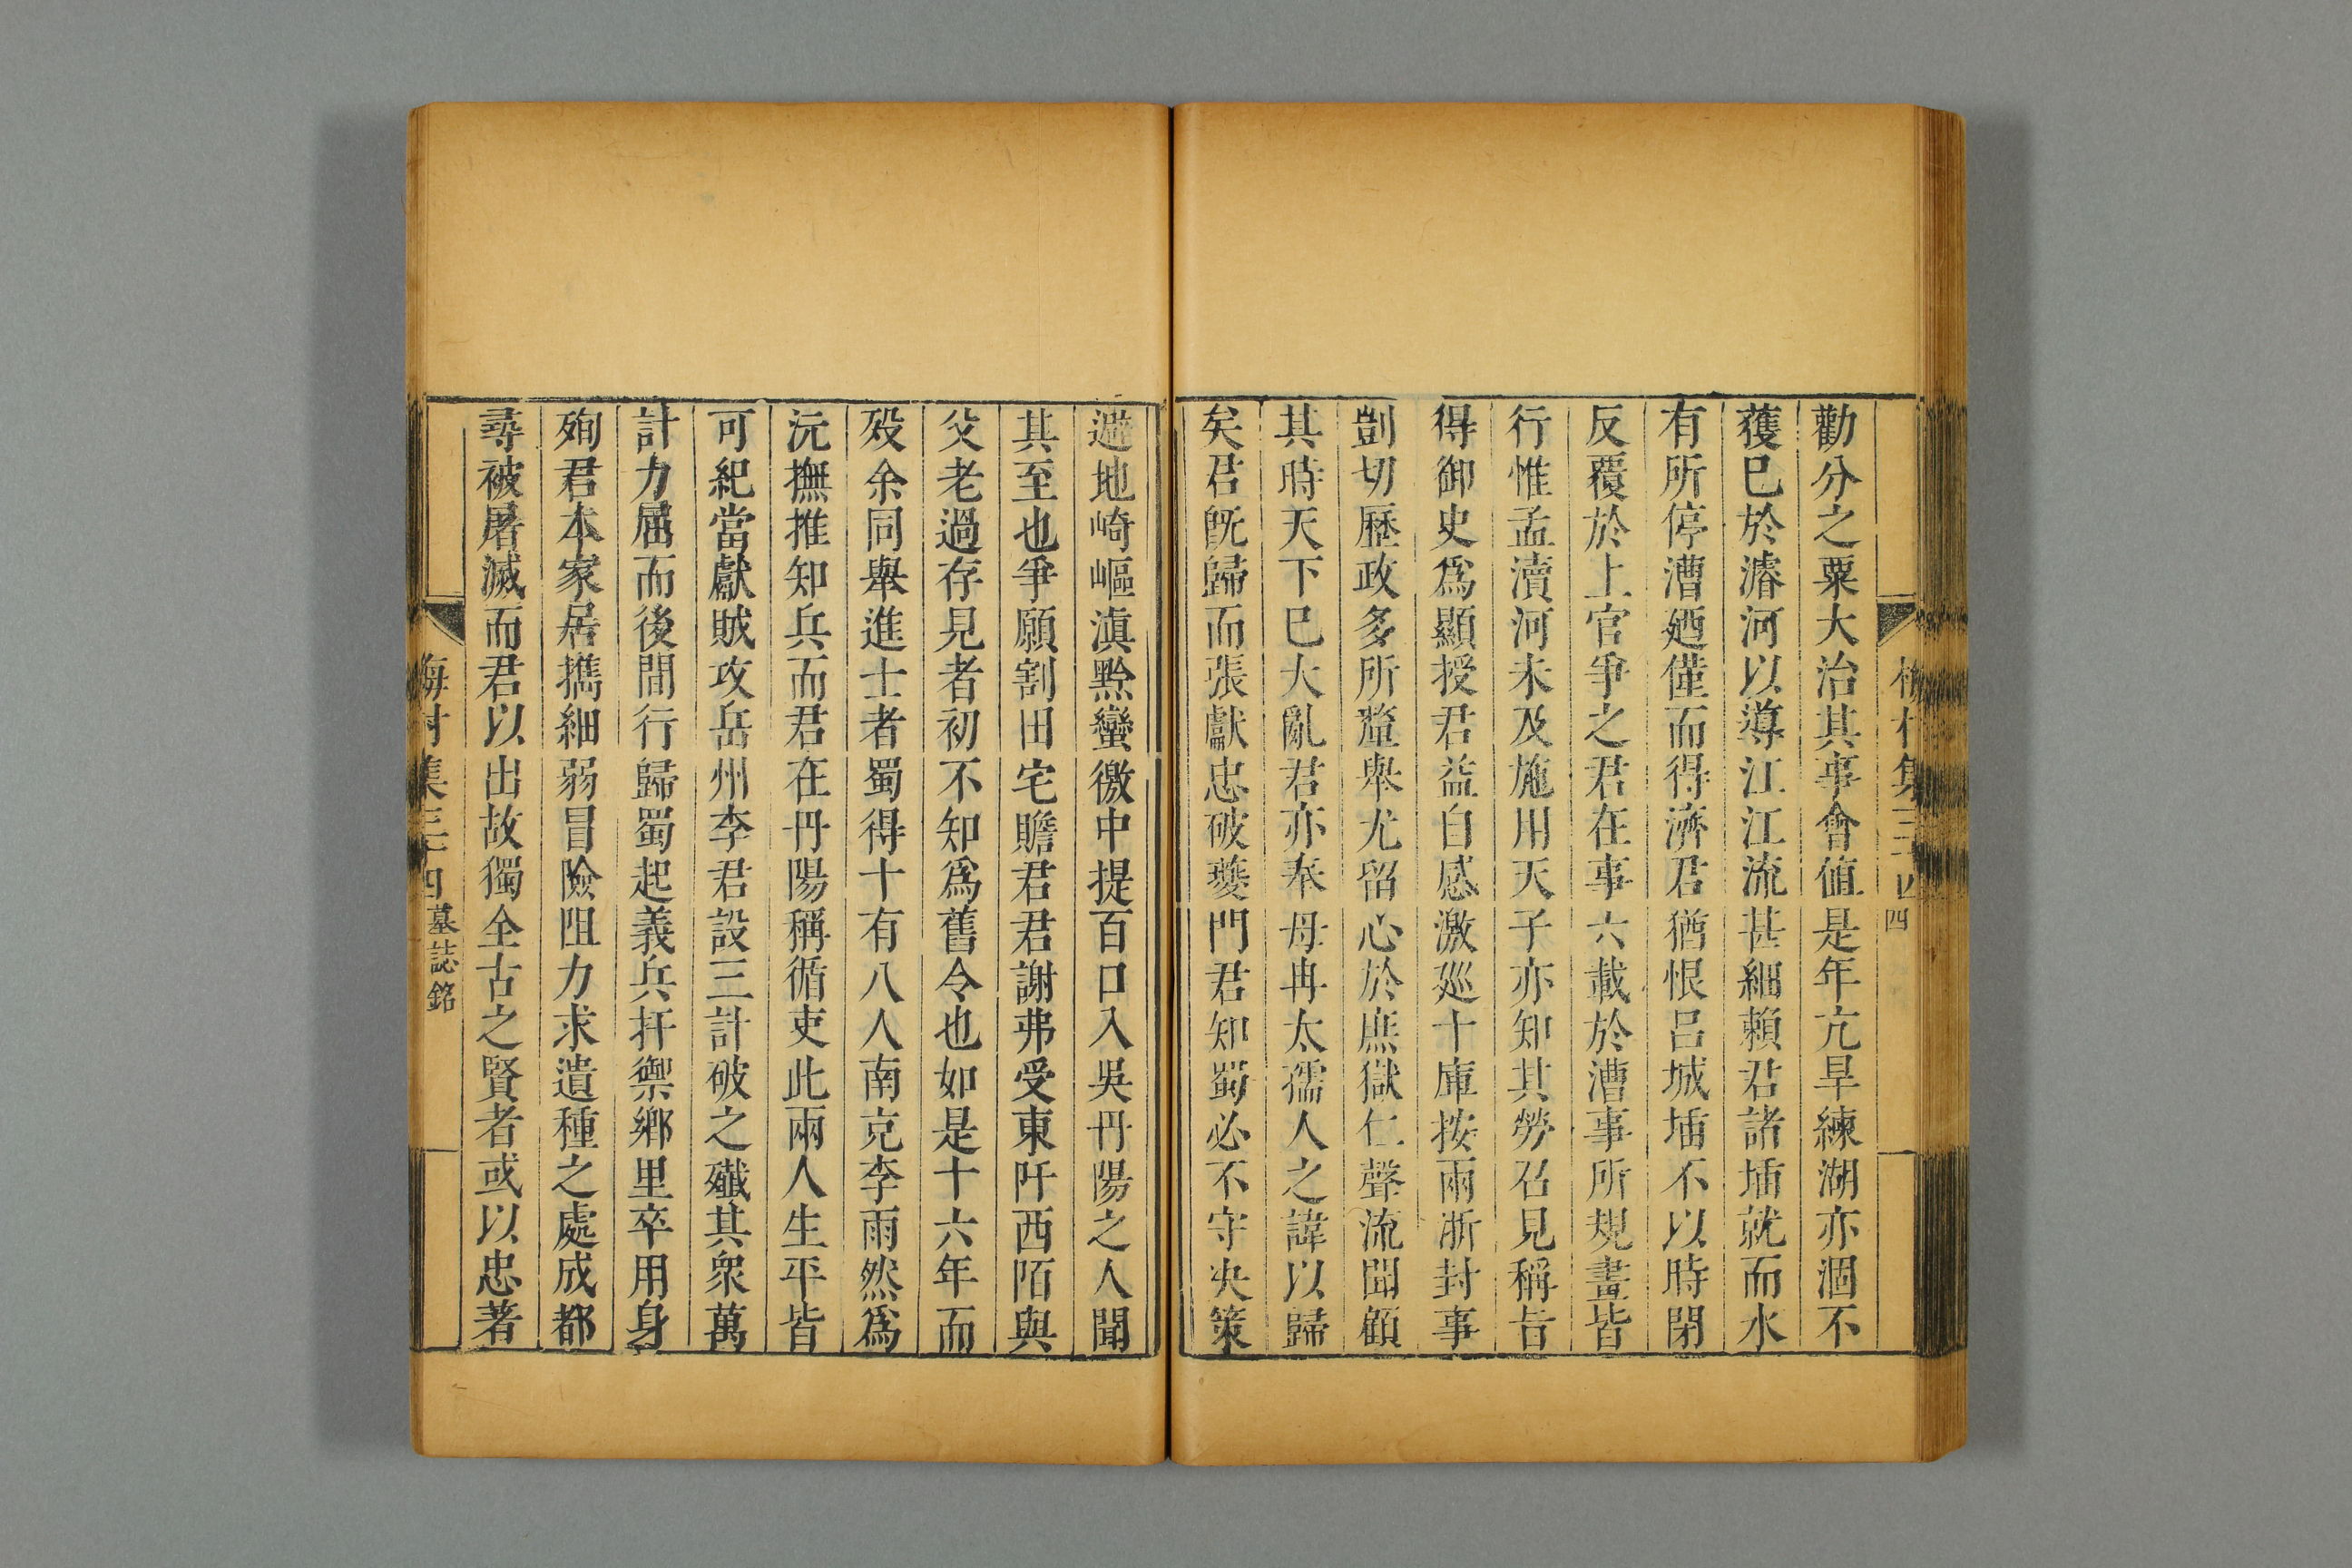 勸分之粟大治其事會値是年亢旱練湖亦涸不
獲巳於濬河以導江江流甚細賴君諸堛就而水
有所停漕廼僅而得濟君猶恨呂城堛不以時閉
反覆於上官爭之君在事六載於漕事所規畫皆
行惟孟瀆河未及施用天子亦知其勞召見稱旨
得御史爲顯授君益自感激廵十庫按兩浙封事
剴切歷政多所釐舉尤留心於庶獄仁聲流聞顧
其時天下巳大亂君亦奉母冉太孺人之諱以歸
矣君旣歸而張獻忠破夔門君知蜀必不守夬策
避地崎嶇滇黔蠻徼中提百口入吳丹陽之人聞
其至也爭願割田宅贍君君謝弗受東阡西陌與
父老過存見者初不知爲舊令也如是十六年而
歿余同舉進士者蜀得十有八人南充李雨然爲
沅撫推知兵而君在丹陽稱循吏此兩人生平皆
可紀當獻賊攻岳州李君設三計破之殲其衆萬
計力屈而後間行歸蜀起義兵扞禦鄕里卒用身
殉君本家居攜細弱冒險阻力求遺種之處成都
尋被屠滅而君以出故獨全古之賢者或以忠著
梅村集三十四 墓誌銘
四